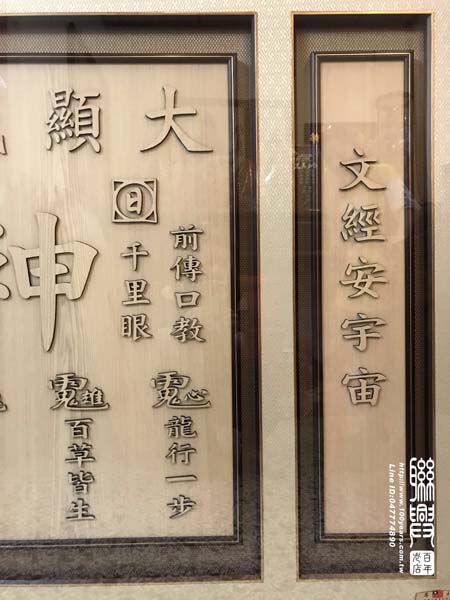 文經安宇宙
大顯
神
前傳口教
日
千里眼
龍行一步
百草皆生
聯興
百年老店
http://www.100years.com.tw
Line ID:047774890